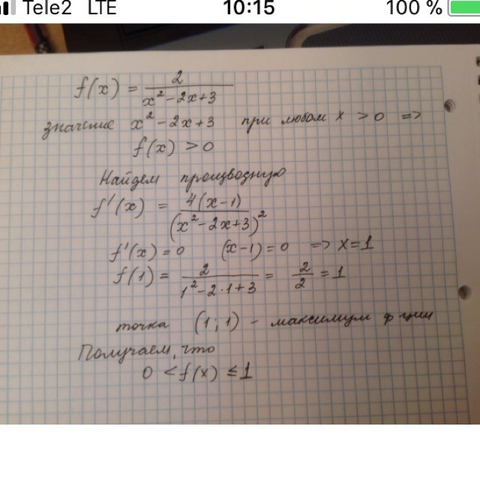 Tele2 LTE 10:15 100 %
f(x) = 2/(x² - 2x + 3)
значение x² - 2x + 3 при любом x > 0 =>
f(x) > 0
Найдем производную
f'(x) = 4(x-1)/(x² - 2x + 3)²
f'(x) = 0 (x-1) = 0 => x = 1
f(1) = 2/(1² - 2·1 + 3) = 2/2 = 1
точка (1; 1) - максимум ф-ции
Получаем, что
0 < f(x) ≤ 1